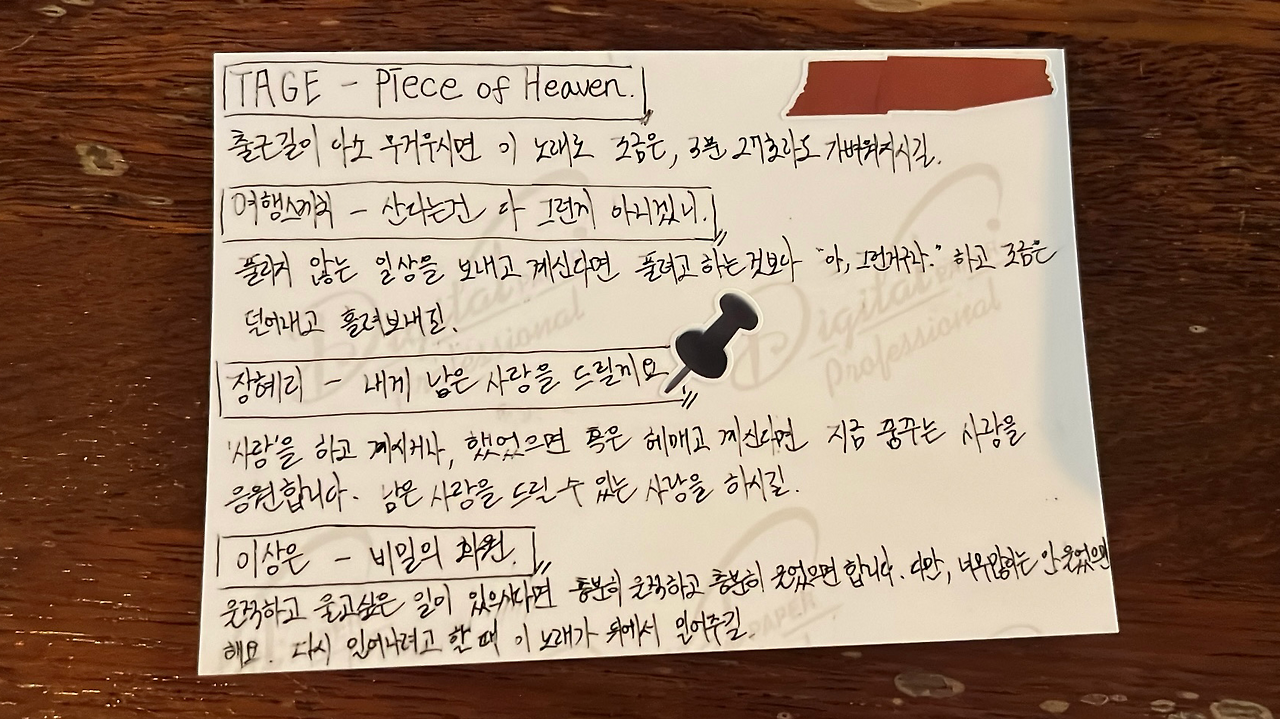 TAGE - Piece of Heaven.
출근길이 다소 무거우시면 이 노래로 조금은, 3분 27초라도 가벼워지시길.
여행스케치 - 산다는건 다 그런게 아니겠니.
풀리지 않는 일상을 보내고 계신다면 풀려고 하는것보다 "아, 그런거구나." 하고 조금은
덜어내고 흘려보내길.
장혜리 - 내게 남은 사랑을 드릴께요
'사랑'을 하고 계시거나, 했었으면 혹은 헤매고 계신다면 지금 꿈꾸는 사랑을
응원합니다. 남은 사랑을 드릴 수 있는 사랑을 하시길.
이상은 - 비밀의 화원.
울적하고 울고싶은 일이 있으시다면 충분히 울적하고 충분히 울었으면 합니다. 다만, 너무많이는 안 울었으면
해요. 다시 일어나려고 할 때 이 노래가 뒤에서 밀어주길.
Digital PAPER
Professional
Digital PAPER
Professional
PAPER